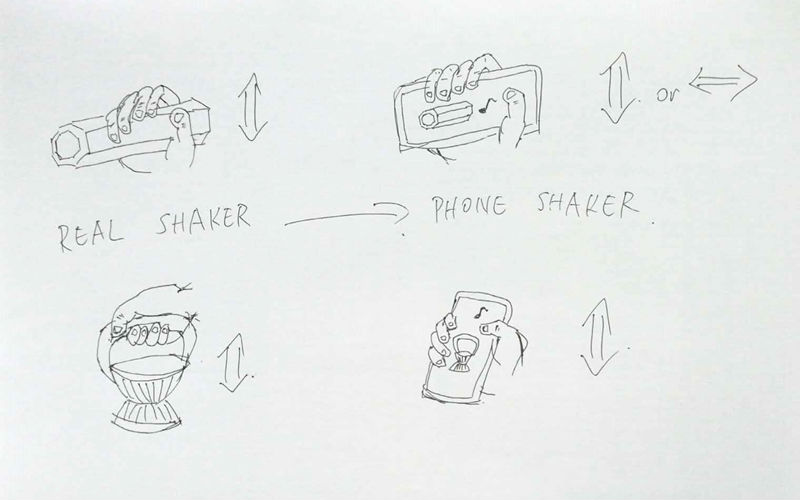 or
REAL SHAKER PHONE SHAKER.